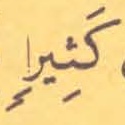 كَثِيرٍا